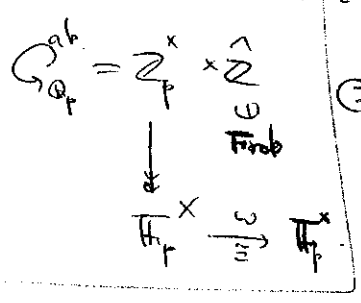 G_{ℚ_p}^{ab} = ℤ_p^× × \hat{ℤ}
Frob
𝔽_p^× \xrightarrow[≅]{ω} 𝔽_p^×